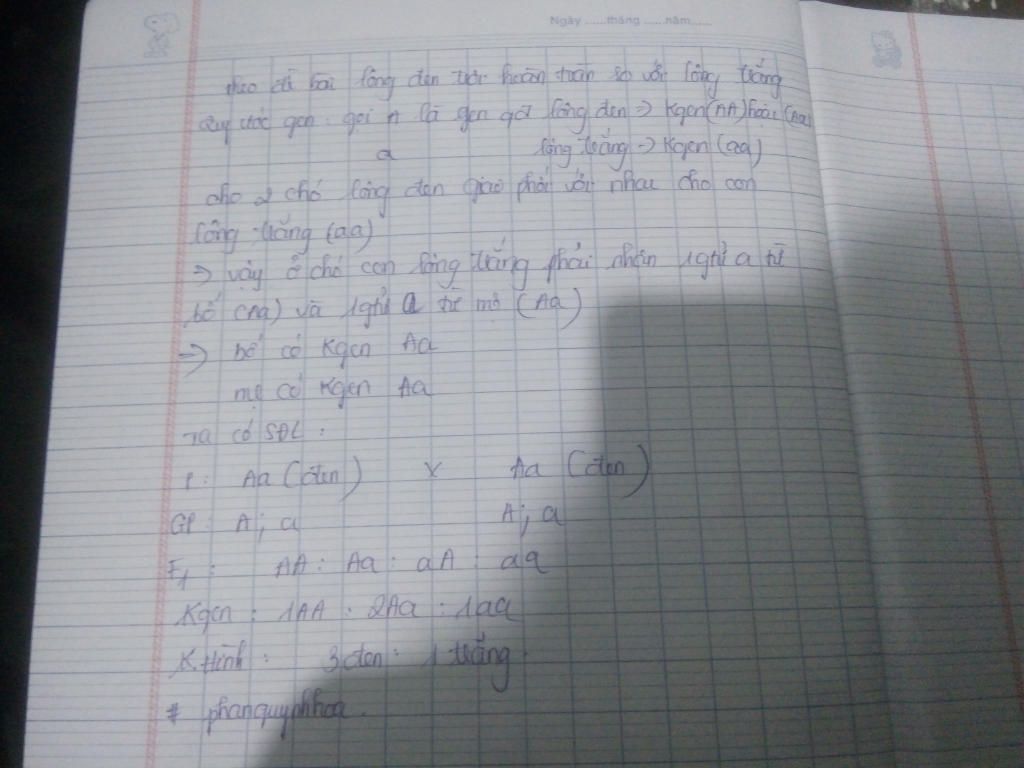 Ngày ......tháng ......năm......
theo đề bài lông đen trội hoàn toàn so với lông trắng
Quy ước gen: gọi A là gen qđ lông đen => Kgen(AA)hoặc(Aa)
a lông trắng -> Kgen (aa)
cho 2 chó lông đen giao phối với nhau cho con
lông trắng (aa)
=> vậy ở chó con lông trắng phải nhận 1giử a từ
bố (Aa) và 1giử a từ mẹ (Aa)
=> bố có Kgen Aa
mẹ có Kgen Aa
Ta có SĐL:
P: Aa (đen) x Aa (đen)
GP: A; a A; a
F1: AA : Aa : aA : aa
Kgen : 1AA : 2Aa : 1aa
K.Hình : 3 đen : 1 trắng.
# phanquynhhoa.